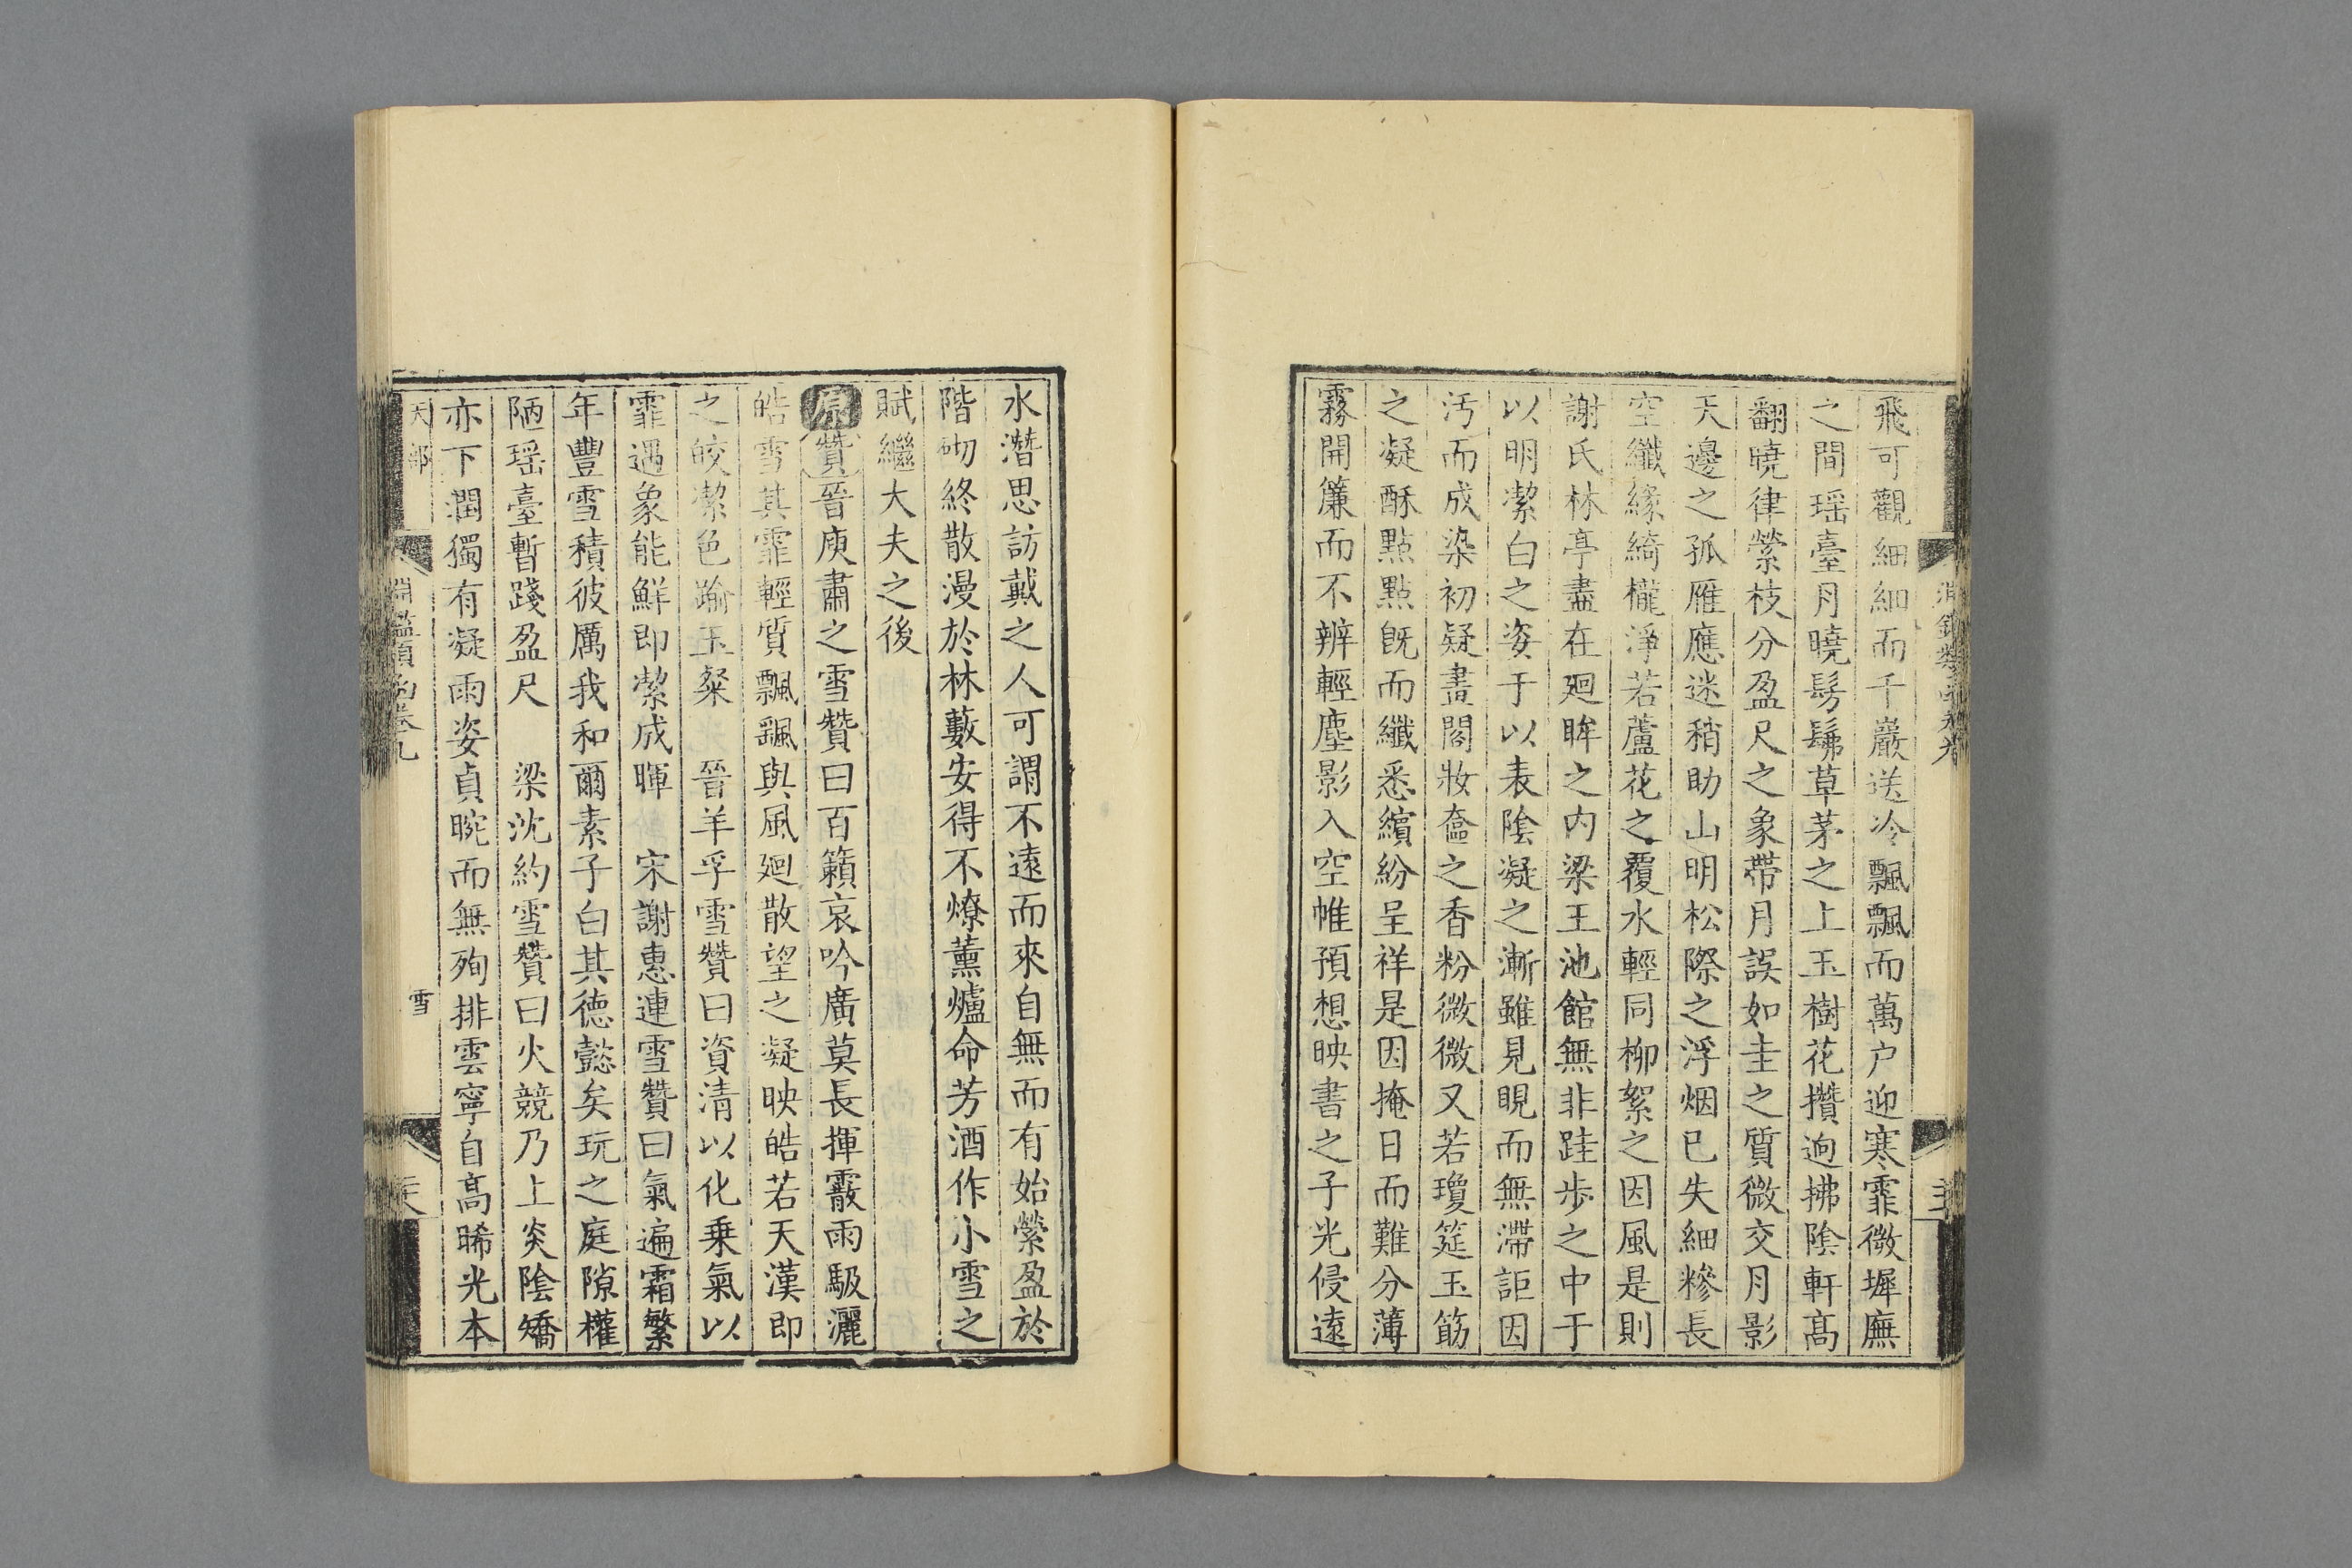 飛可觀細細而千巖送冷飄飄而萬户迎寒霏微墀廡
之間瑶臺月曉髣髴草茅之上玉樹花攢迥拂陰軒高
翻曉律縈枝分盈尺之象帶月誤如圭之質微交月影
天邊之孤雁應迷稍助山明松際之浮烟已失細糝長
空纖緣綺櫳淨若蘆花之覆水輕同柳絮之因風是則
謝氏林亭盡在廻眸之内梁王池館無非跬歩之中于
以明潔白之姿于以表陰凝之漸雖見晛而無滯詎因
汚而成染初疑畫閣妝奩之香粉微微又若瓊筵玉筯
之凝酥點點既而纖悉繽紛呈祥是因掩日而難分薄
霧開簾而不辨輕塵影入空帷預想映書之子光侵遠
水潛思訪戴之人可謂不遠而來自無而有始縈盈於
階砌終散漫於林藪安得不燎薰爐命芳酒作小雪之
賦繼大夫之後
原贊晉庾肅之雪贊曰百籟哀吟廣莫長揮霰雨馺灑
皓雪其霏輕質飄颻與風廻散望之凝映皓若天漢即
之皎潔色踰玉粲 晉羊孚雪贊曰資清以化乗氣以
霏遇象能鮮即潔成暉 宋謝惠連雪贊曰氣遍霜繁
年豐雪積彼厲我和爾素子白其德懿矣玩之庭隙權
陋瑶臺暫踐盈尺 梁沈約雪贊曰火競乃上炎陰矯
亦下潤獨有凝雨姿貞晼而無殉排雲寧自高晞光本
天部
淵鑑類函卷九
雪